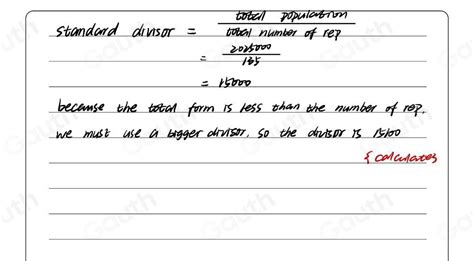 standard divisor = total population
total number of rep
= 2025000
135
= 15000
because the total form is less than the number of rep.
we must use a bigger divisor, so the divisor is 15100
{ calculates